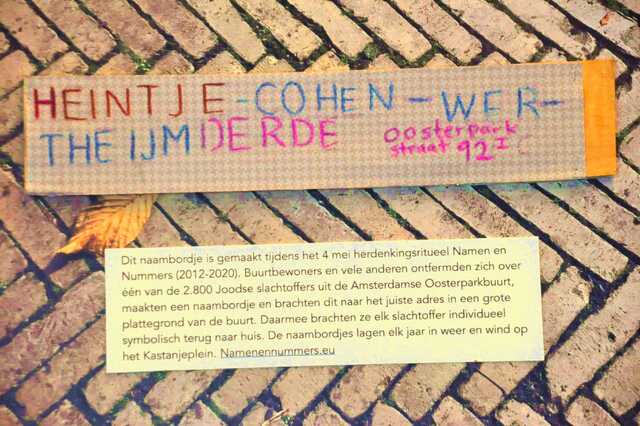 HEINTJE-COHEN-WER-
THEIJMDERDE
oosterpark
straat 92 I
Dit naambordje is gemaakt tijdens het 4 mei herdenkingsritueel Namen en
Nummers (2012-2020). Buurtbewoners en vele anderen ontfermden zich over
één van de 2.800 Joodse slachtoffers uit de Amsterdamse Oosterparkbuurt,
maakten een naambordje en brachten dit naar het juiste adres in een grote
plattegrond van de buurt. Daarmee brachten ze elk slachtoffer individueel
symbolisch terug naar huis. De naambordjes lagen elk jaar in weer en wind op
het Kastanjeplein. Namenennummers.eu